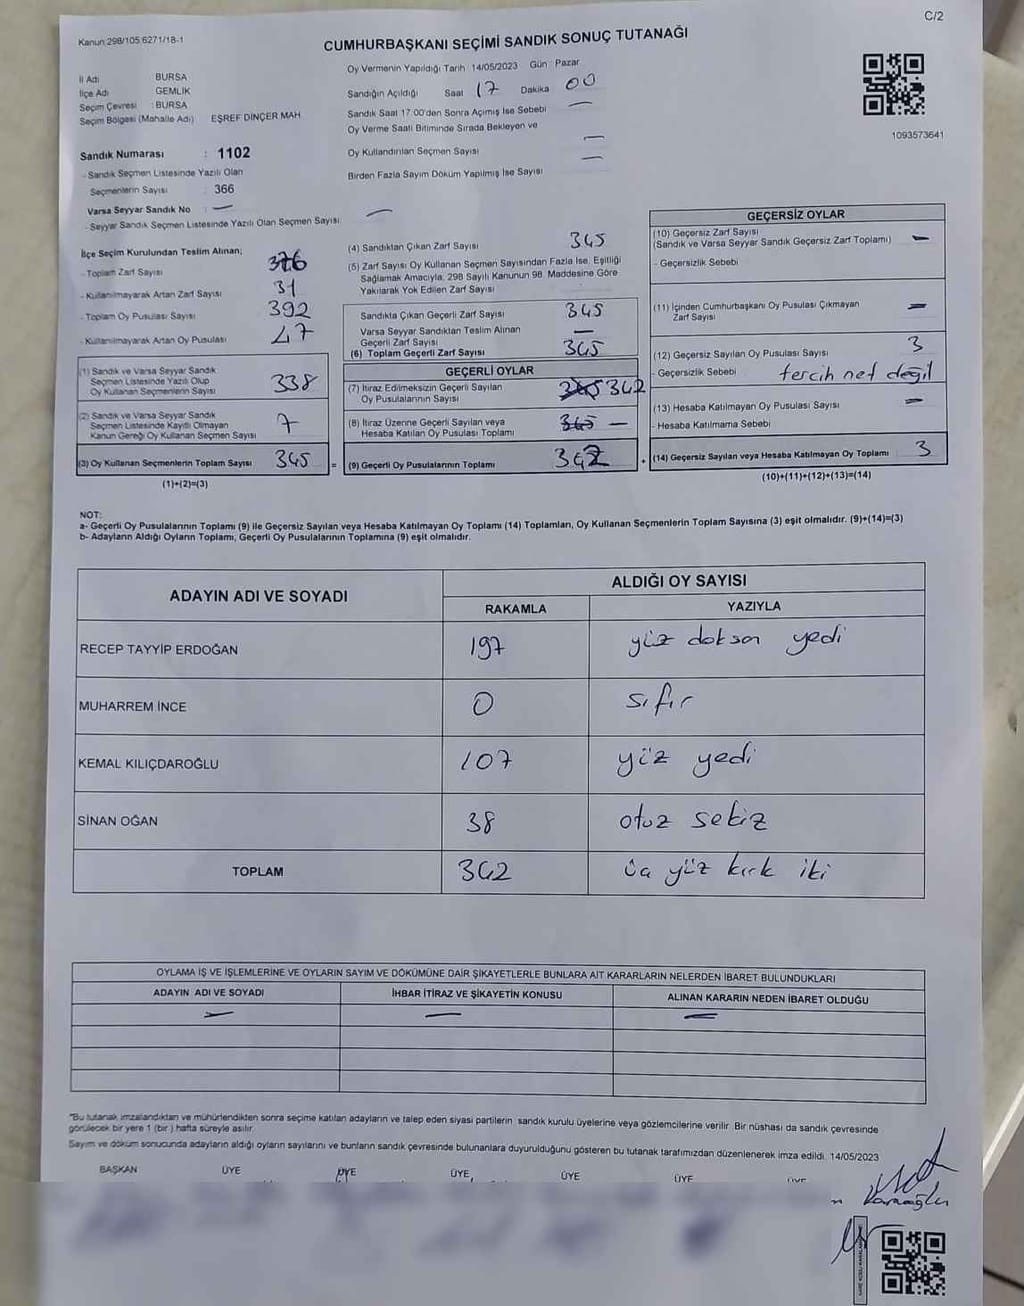 C/2
Kanun 298/105 6271/18-1
CUMHURBAŞKANI SEÇİMİ SANDIK SONUÇ TUTANAĞI
İl Adı BURSA
İlçe Adı GEMLİK
Seçim Çevresi : BURSA
Seçim Bölgesi (Mahalle Adı) EŞREF DİNÇER MAH
Sandık Numarası : 1102
- Sandık Seçmen Listesinde Yazılı Olan
Seçmenlerin Sayısı : 366
Varsa Seyyar Sandık No : —
- Seyyar Sandık Seçmen Listesinde Yazılı Olan Seçmen Sayısı —
Oy Vermenin Yapıldığı Tarih 14/05/2023 Gün : Pazar
Sandığın Açıldığı Saat 17 Dakika 00
Sandık Saat 17:00'den Sonra Açılmış İse Sebebi —
Oy Verme Saati Bitiminde Sırada Bekleyen ve
Oy Kullandırılan Seçmen Sayısı —
Birden Fazla Sayım Döküm Yapılmış İse Sayısı —
1093573641
İlçe Seçim Kurulundan Teslim Alınan;
- Toplam Zarf Sayısı 376
- Kullanılmayarak Artan Zarf Sayısı 31
- Toplam Oy Pusulası Sayısı 392
- Kullanılmayarak Artan Oy Pusulası 47
(1) Sandık ve Varsa Seyyar Sandık
Seçmen Listesinde Yazılı Olup
Oy Kullanan Seçmenlerin Sayısı 338
(2) Sandık ve Varsa Seyyar Sandık
Seçmen Listesinde Kayıtlı Olmayan
Kanun Gereği Oy Kullanan Seçmen Sayısı 7
(3) Oy Kullanan Seçmenlerin Toplam Sayısı 345 =
(1)+(2)=(3)
(4) Sandıktan Çıkan Zarf Sayısı 345
(5) Zarf Sayısı Oy Kullanan Seçmen Sayısından Fazla İse, Eşitliği
Sağlamak Amacıyla, 298 Sayılı Kanunun 98. Maddesine Göre
Yakılarak Yok Edilen Zarf Sayısı
Sandıkta Çıkan Geçerli Zarf Sayısı 345
Varsa Seyyar Sandıktan Teslim Alınan
Geçerli Zarf Sayısı —
(6) Toplam Geçerli Zarf Sayısı 345
GEÇERLİ OYLAR
(7) İtiraz Edilmeksizin Geçerli Sayılan
Oy Pusulalarının Sayısı 345 342
(8) İtiraz Üzerine Geçerli Sayılan veya
Hesaba Katılan Oy Pusulası Toplamı 345 —
(9) Geçerli Oy Pusulalarının Toplamı 342 +
GEÇERSİZ OYLAR
(10) Geçersiz Zarf Sayısı
(Sandık ve Varsa Seyyar Sandık Geçersiz Zarf Toplamı) —
- Geçersizlik Sebebi
(11) İçinden Cumhurbaşkanı Oy Pusulası Çıkmayan
Zarf Sayısı —
(12) Geçersiz Sayılan Oy Pusulası Sayısı 3
- Geçersizlik Sebebi tercih net değil
(13) Hesaba Katılmayan Oy Pusulası Sayısı —
- Hesaba Katılmama Sebebi
(14) Geçersiz Sayılan veya Hesaba Katılmayan Oy Toplamı 3
(10)+(11)+(12)+(13)=(14)
NOT:
a- Geçerli Oy Pusulalarının Toplamı (9) ile Geçersiz Sayılan veya Hesaba Katılmayan Oy Toplamı (14) Toplamları, Oy Kullanan Seçmenlerin Toplam Sayısına (3) eşit olmalıdır. (9)+(14)=(3)
b- Adayların Aldığı Oyların Toplamı, Geçerli Oy Pusulalarının Toplamına (9) eşit olmalıdır.
ADAYIN ADI VE SOYADI ALDIĞI OY SAYISI
RAKAMLA YAZIYLA
RECEP TAYYİP ERDOĞAN 197 yüz doksan yedi
MUHARREM İNCE 0 sıfır
KEMAL KILIÇDAROĞLU 107 yüz yedi
SİNAN OĞAN 38 otuz sekiz
TOPLAM 342 üç yüz kırk iki
OYLAMA İŞ VE İŞLEMLERİNE VE OYLARIN SAYIM VE DÖKÜMÜNE DAİR ŞİKAYETLERLE BUNLARA AİT KARARLARIN NELERDEN İBARET BULUNDUKLARI
ADAYIN ADI VE SOYADI İHBAR İTİRAZ VE ŞİKAYETİN KONUSU ALINAN KARARIN NEDEN İBARET OLDUĞU
— — —
"Bu tutanak imzalandıktan ve mühürlendikten sonra seçime katılan adayların ve talep eden siyasi partilerin sandık kurulu üyelerine veya gözlemcilerine verilir. Bir nüshası da sandık çevresinde
görülecek bir yere 1 (bir) hafta süreyle asılır.
Sayım ve döküm sonucunda adayların aldığı oyların sayılarını ve bunların sandık çevresinde bulunanlara duyurulduğunu gösteren bu tutanak tarafımızdan düzenlenerek imza edildi. 14/05/2023
BAŞKAN ÜYE ÜYE ÜYE, ÜYE ÜYE ÜYE